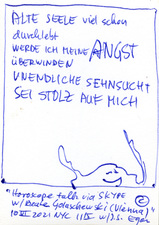 ALTE SEELE viel schon
durchlebt
WERDE ICH MEINE ANGST
ÜBERWINDEN
UNENDLICHE SEHNSUCHT
SEI STOLZ AUF MICH
"Horoskope talk via SKYPE
w/ Beate Golaschewski (Vienna)"
NYC w/J.S. Egger
©